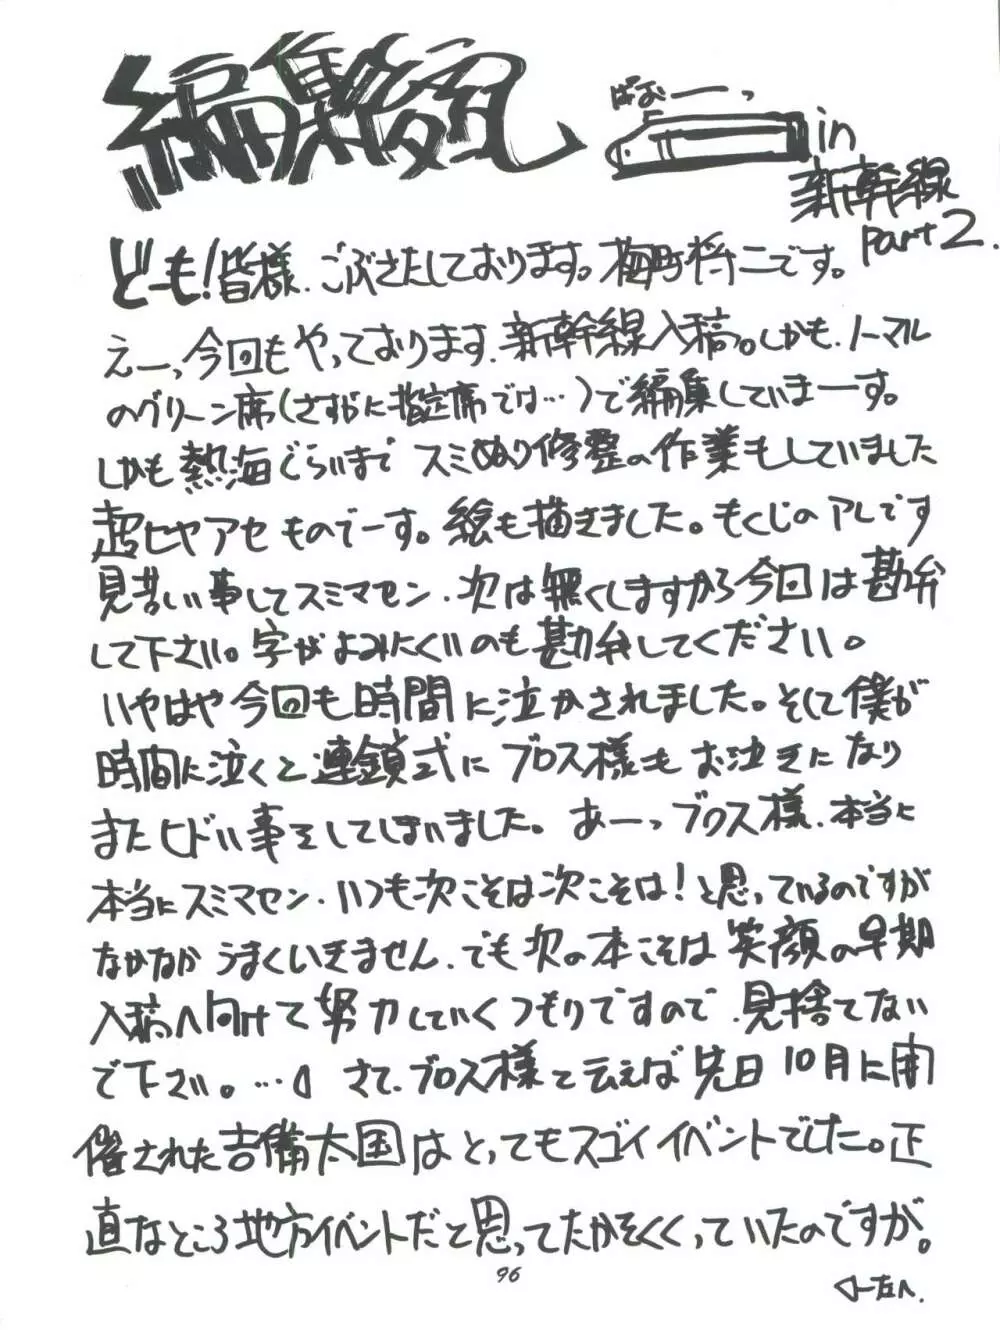 編集後記
ぱおーーっ
in
新幹線
part2.
どーも!皆様、ごぶさたしております。梅町将二です。
えーっ今回もやっております、新幹線入稿。しかも、ノーマル
のグリーン席(さすがに指定席では…)で編集していまーす。
しかも熱海ぐらいまでスミぬり修整の作業もしていました
超ヒヤアセものでーす。絵も描きました。もくじのアレです
見苦しい事してスミマセン、次は無くしますから今回は勘弁
して下さい。字がよみにくいのも勘弁してください。
いやはや今回も時間に泣かされました。そして僕が
時間に泣くと連鎖式にブロス様もお泣きになり
またヒドい事をしてしまいました。あーっブロス様、本当に
本当にスミマセン、いつも次こそは次こそは!と思っているのですが
なかなかうまくいきません、でも次の本こそは笑顔の早期
入稿へ向けて努力していくつもりですので、見捨てない
で下さい。… さて、ブロス様と云えば先日10月に開
催された吉備太国はとってもスゴイイベントでした。正
直なところ地方イベントだと思ってたかをくくっていたのですが。
96
左へ.